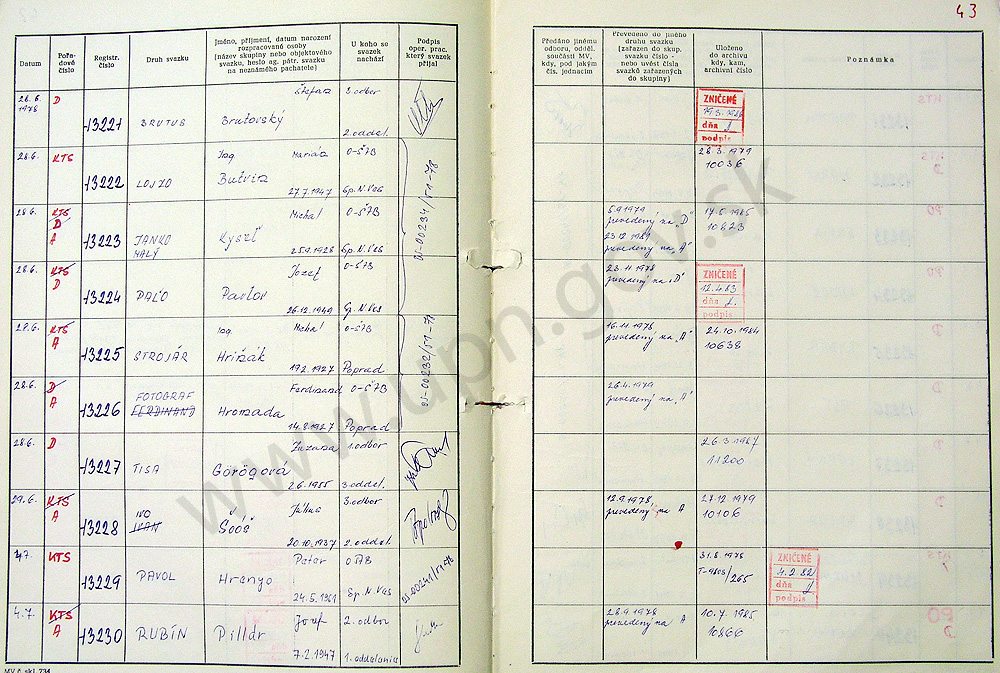 43
Datum
Pořa-
dové
číslo
Registr.
číslo
Druh svazku
Jméno, příjmení, datum narození
rozpracované osoby
(název skupiny nebo objektového
svazku, heslo ag. pátr. svazku
na neznámého pachatele)
U koho se
svazek
nachází
Podpis
oper. prac.
který svazek
přijal
Předáno jinému
odboru, odděl.
součásti MV,
kdy, pod jakým
čís. jednacím
Převedeno do jiného
druhu svazku
(zařazen do skup.
svazku číslo -
nebo uvést čísla
svazků zařazených
do skupiny)
Uloženo
do archívu
kdy, kam,
archivní číslo
Poznámka
28.6.
1978
D
13221
BRUTUS
Štefan
Brutovský
3.odbor
2.oddel.
ZNIČENÉ
dňa
podpis
28.6.
KTS
13222
LOJZO
Ing. Marián
Butvin
27.7.1947
O-ŠTB
Sp.N.Ves
28.3.1979
10036
28.6.
KTS
D
A
13223
JANKO
MALÝ
Michal
Kyseľ
25.9.1928
O-ŠTB
Sp.N.Ves
5.9.1979
prevedený na "D"
prevedený na "A"
17.5.1985
10823
28.6.
KTS
D
13224
PAĽO
Jozef
Pavlov
26.12.1949
O-ŠTB
Sp.N.Ves
23.11.1978
prevedený na "D"
ZNIČENÉ
12.4.83
dňa
podpis
28.6.
KTS
A
13225
STROJÁR
Ing. Michal
Hrižák
19.2.1927
O-ŠTB
Poprad
16.11.1978
prevedený na "A"
24.10.1984
10638
28.6.
D
A
13226
FOTOGRAF
FERDINAND
Ferdinand
Hromada
14.8.1927
O-ŠTB
Poprad
26.4.1979
prevedený na "A"
28.6.
D
13227
TISA
Zuzana
Görögová
2.6.1955
1.odbor
3.oddel.
26.3.1987
11200
29.6.
KTS
A
13228
IVO
IVAN
Július
Šóóš
20.10.1937
3.odbor
2.oddel.
12.9.1978
prevedený na A
27.12.1979
10106
4.7.
KTS
13229
PAVOL
Peter
Hrenyo
24.5.1951
O ŠTB
Sp.N.Ves
31.8.1978
ZNIČENÉ
4.2.82
dňa
podpis
4.7.
KTS
A
13230
RUBÍN
Jozef
Pillár
7.2.1947
2.odbor
1.oddelenie
28.9.1978
prevedený na A
10.7.1985
10866
www.upn.gov.sk